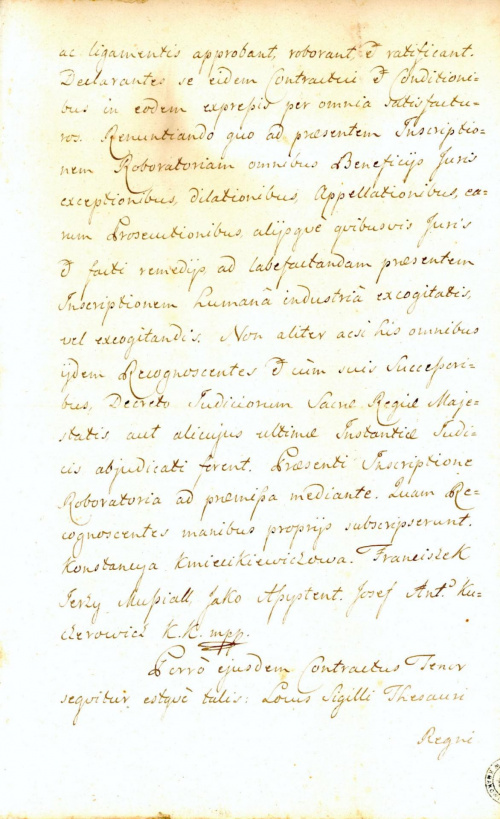 ac ligamentis approbant, roborant, et ratificant.
Declarantes se eidem Contractui et Conditioni-
bus in eodem expressis per omnia satisfactu-
ros. Renuntiando quo ad præsentem Inscriptio-
nem Roboratoriam omnibus Beneficijs Juris
exceptionibus, dilationibus, Appellationibus, ea-
rum Prosecutionibus alijsque quibusvis Juris
et facti remedijs ad labefactandam præsentem
Inscriptionem humanâ industriâ excogitatis,
vel excogitandis. Non aliter acsi his omnibus
ijdem Recognoscentes et cùm suis Successori-
bus, Decreto Judiciorum Sacræ Regiæ Maje-
statis aut alicujus ultimæ Instantiæ Judi-
cis abjudicati forent. Præsenti Inscriptione
Roboratoria ad præmissa mediante. Quam Re-
cognoscentes manibus proprijs subscripserunt.
Konstancya Kmiecikiewiczowa. Franciszek
Jerzy Mussiall, Jako Assystent. Josef Ant.º Ku-
czerowicz K.K. mpp.
Porrò ejusdem Contractus Tenor
sequitur, estquè talis: Locus Sigilli Thesauri
Regni